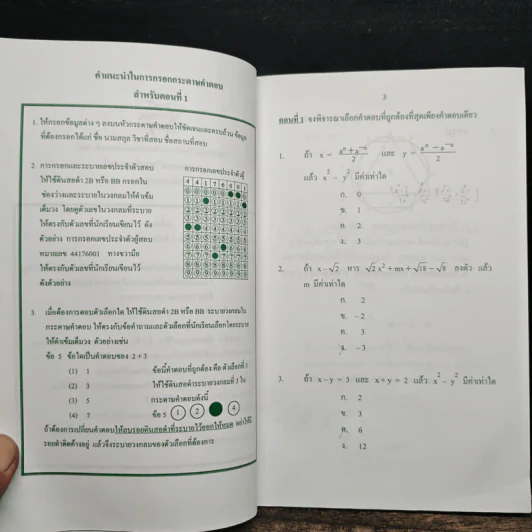 คำแนะนำในการกรอกกระดาษคำตอบ
สำหรับตอนที่ 1
1. ให้กรอกข้อมูลต่าง ๆ ลงบนหัวกระดาษคำตอบให้ชัดเจนและครบถ้วน ข้อมูล
ที่ต้องกรอกได้แก่ ชื่อ นามสกุล วิชาที่สอบ ชื่อสถานที่สอบ
2. การกรอกและระบายเลขประจำตัวสอบ
ให้ใช้ดินสอดำ 2B หรือ BB กรอกใน
ช่องว่างและระบายในวงกลมให้ดำเข้ม
เต็มวง โดยดูตัวเลขในวงกลมที่ระบาย
ให้ตรงกับตัวเลขที่นักเรียนเขียนไว้ ดัง
ตัวอย่าง การกรอกเลขประจำตัวผู้สอบ
หมายเลข 44176001 ทางขวามือ
ให้ตรงกับตัวเลขที่นักเรียนเขียนไว้
ดังตัวอย่าง
การกรอกเลขประจำตัวผู้
4 4 1 7 6 0 0 1
3. เมื่อต้องการตอบตัวเลือกใด ให้ใช้ดินสอดำ 2B หรือ BB ระบายวงกลมใน
กระดาษคำตอบ ให้ตรงกับข้อคำถามและตัวเลือกที่นักเรียนเลือกโดยระบาย
ให้ดำเข้มเต็มวง ตัวอย่างเช่น
ข้อ 5 ข้อใดเป็นคำตอบของ 2 + 3
(1) 1 ข้อนี้คำตอบที่ถูกต้อง คือ ตัวเลือกที่ 3
(2) 3 ให้ใช้ดินสอดำระบายวงกลมที่ 3 ใน
(3) 5 กระดาษคำตอบดังนี้
(4) 7 ข้อ 5 1 2 4
ถ้าต้องการเปลี่ยนคำตอบให้ลบรอยดินสอดำที่ระบายไว้ออกให้หมด อย่าให้มี
รอยดำติดค้างอยู่ แล้วจึงระบายวงกลมของตัวเลือกที่ต้องการ
3
ตอนที่ 1 จงพิจารณาเลือกคำตอบที่ถูกต้องที่สุดเพียงคำตอบเดียว
1. ถ้า x = (aⁿ + a⁻ⁿ)/2 และ y = (aⁿ − a⁻ⁿ)/2
แล้ว x² − y² มีค่าเท่าใด
ก. 0
ข. 1
ค. 2
ง. 3
2. ถ้า x − √2 หาร √2 x² + mx + √18 − √8 ลงตัว แล้ว
m มีค่าเท่าใด
ก. 2
ข. −2
ค. 3
ง. −3
3. ถ้า x − y = 3 และ x + y = 2 แล้ว x² − y² มีค่าเท่าใด
ก. 2
ข. 3
ค. 6
ง. 12